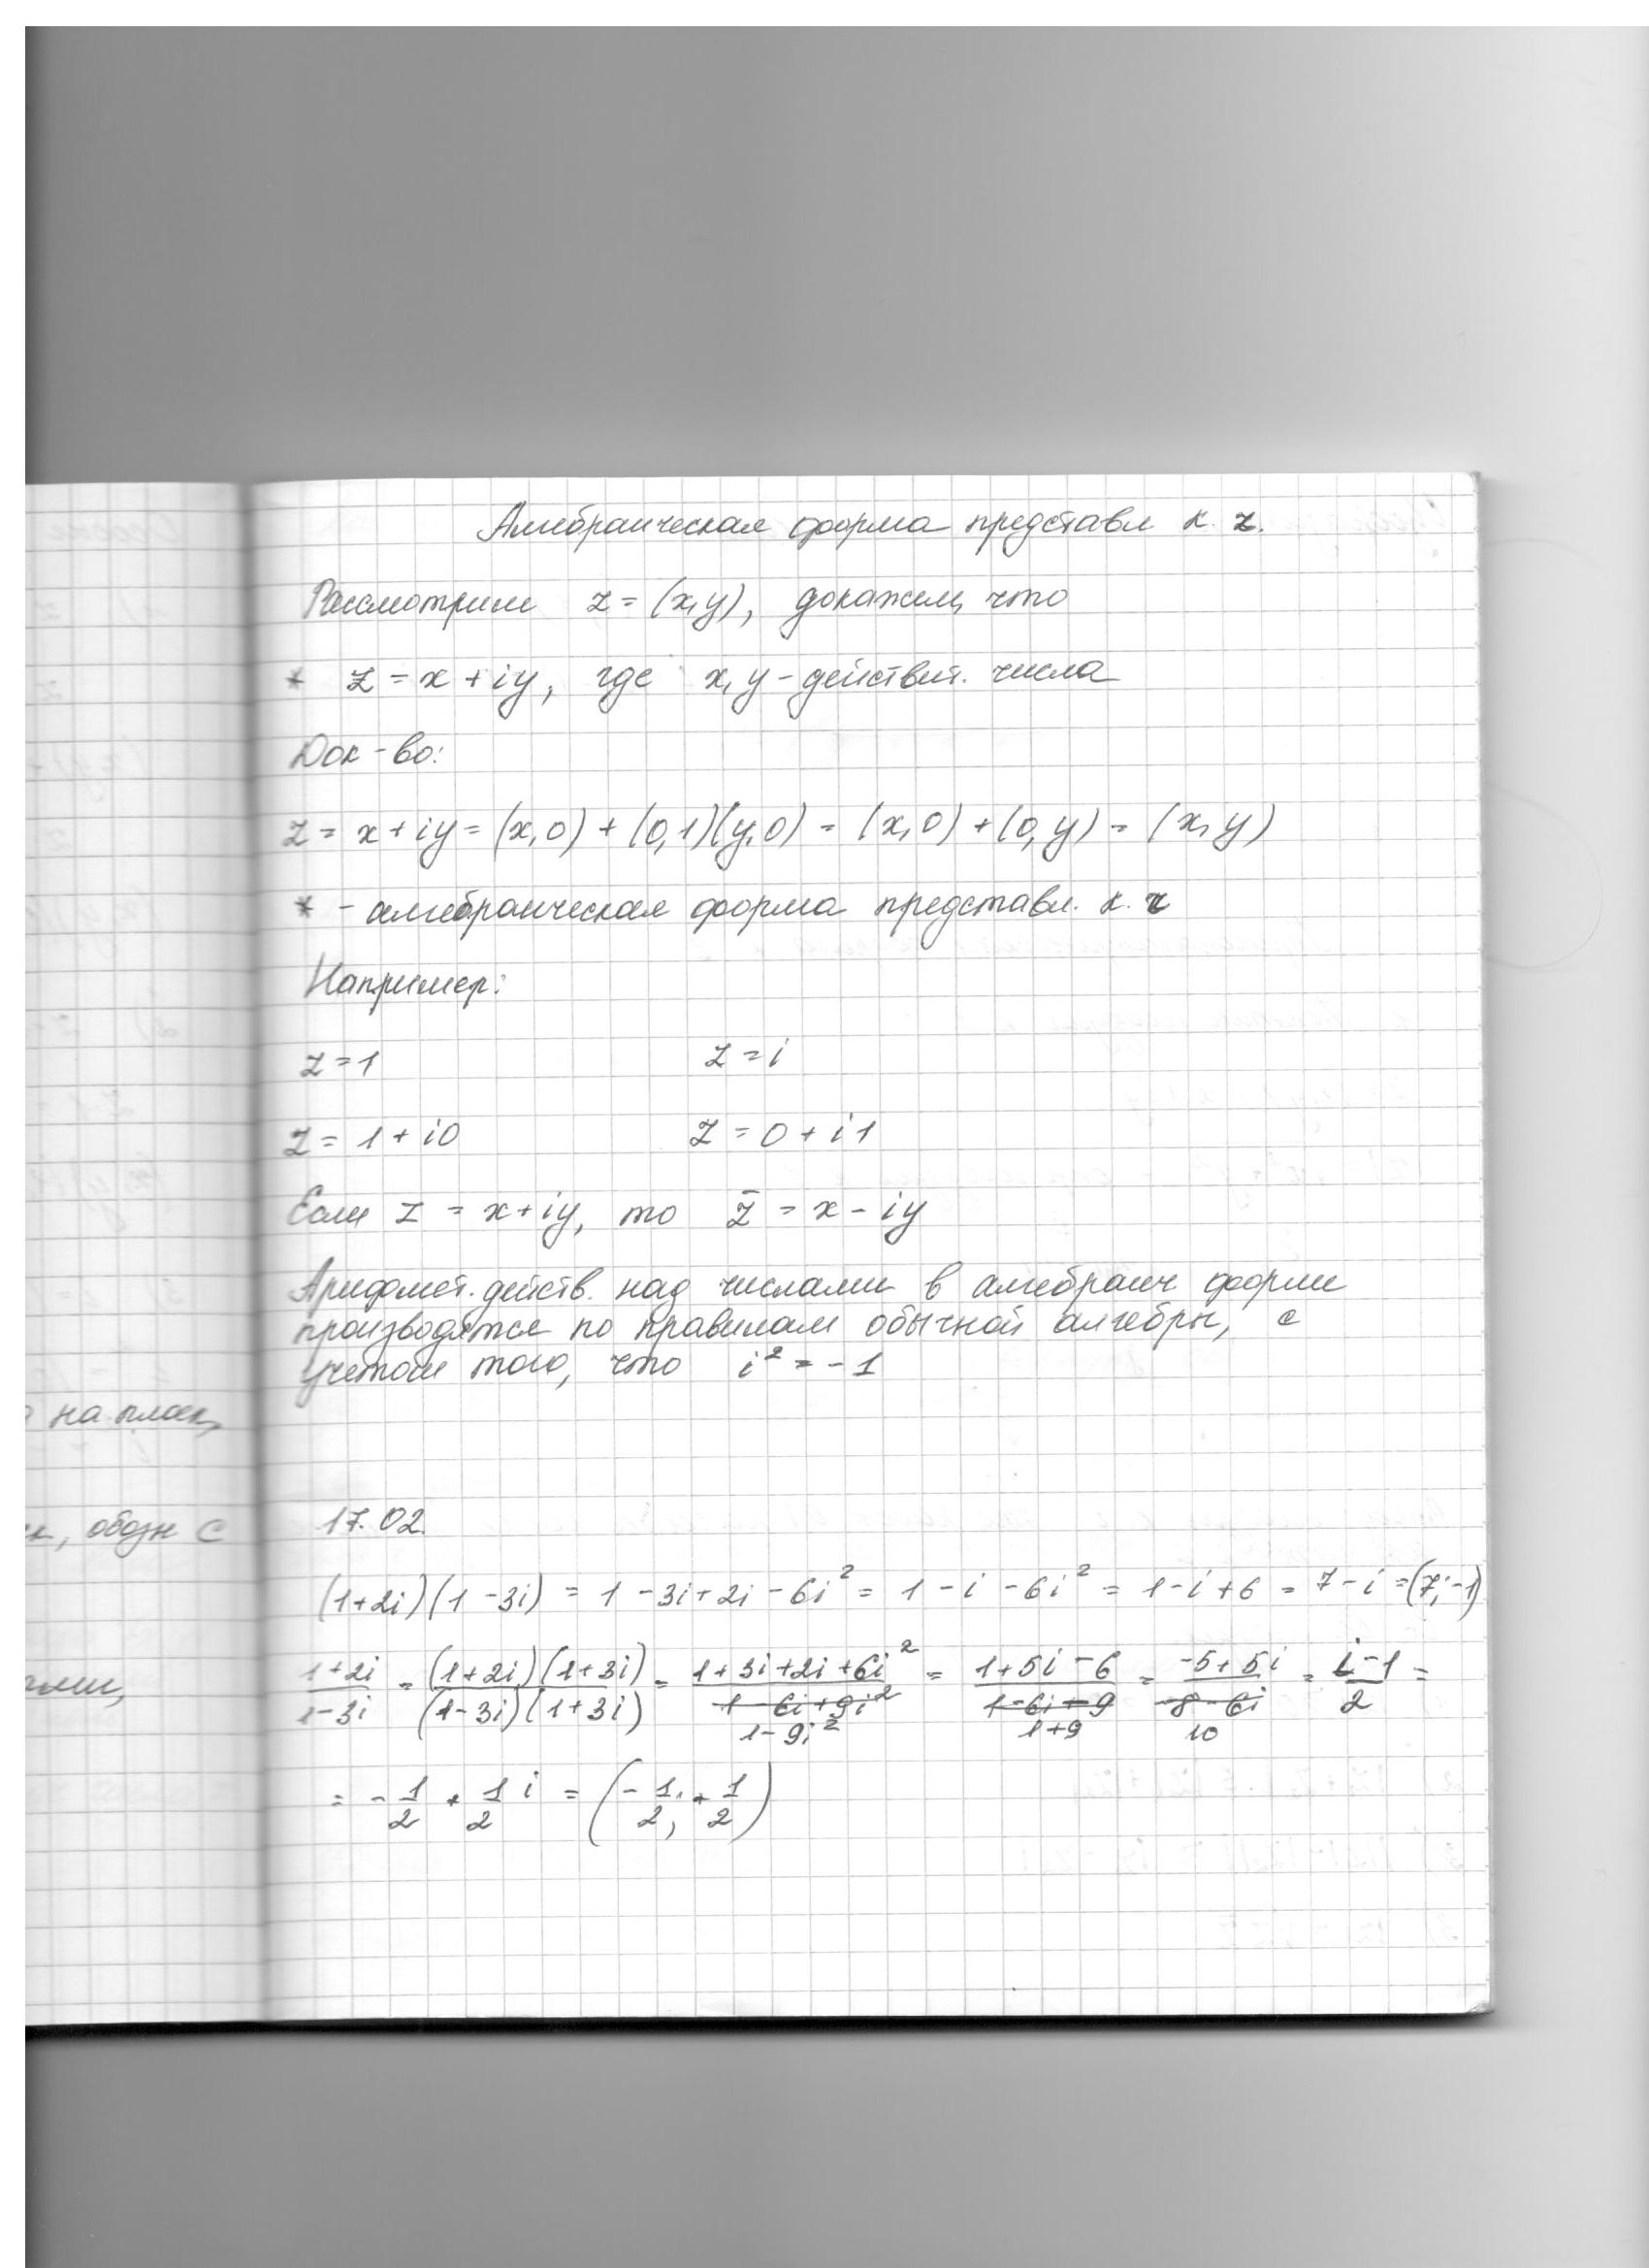 Алгебраическая форма представл к. z.
Рассмотрим z = (x, y), докажем, что
* z = x + iy, где x, y - действит. числа
Док-во:
z = x + iy = (x, 0) + (0, 1)(y, 0) = (x, 0) + (0, y) = (x, y)
* - алгебраическая форма представл. к. z
Например:
z = 1    z = i
z = 1 + i0    z = 0 + i1
Если z = x + iy, то z̄ = x - iy
Арифмет. действ. над числами в алгебраич форме
производятся по правилам обычной алгебры, с
учетом того, что i² = -1
на плоск,
обозн C
17.02.
(1+2i)(1-3i) = 1 - 3i + 2i - 6i² = 1 - i - 6i² = 1 - i + 6 = 7 - i = (7; -1)
(1+2i)/(1-3i) = (1+2i)(1+3i)/(1-3i)(1+3i) = (1+3i+2i+6i²)/(1-9i²) = (1+5i-6)/(1+9) = (-5+5i)/10 = (i-1)/2 =
= -1/2 + 1/2 i = (-1/2, +1/2)